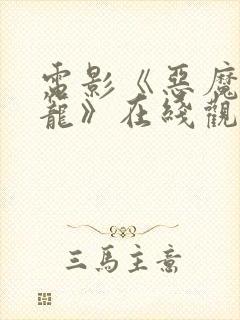 電影《惡魔
龍》在綫觀
三馬主意